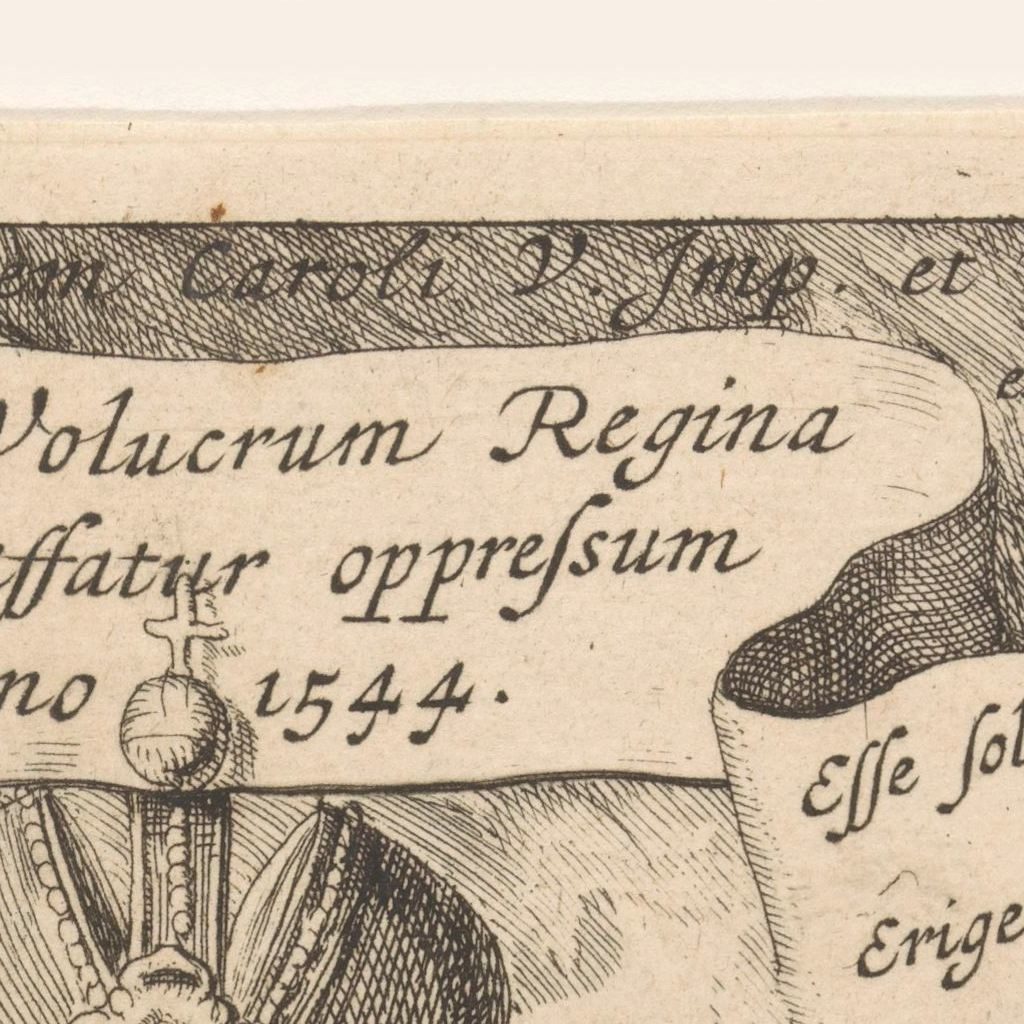 em Caroli V. Imp. et
e
Volucrum Regina
affatur oppreſsum
no 1544.
Eſſe ſol
Erige